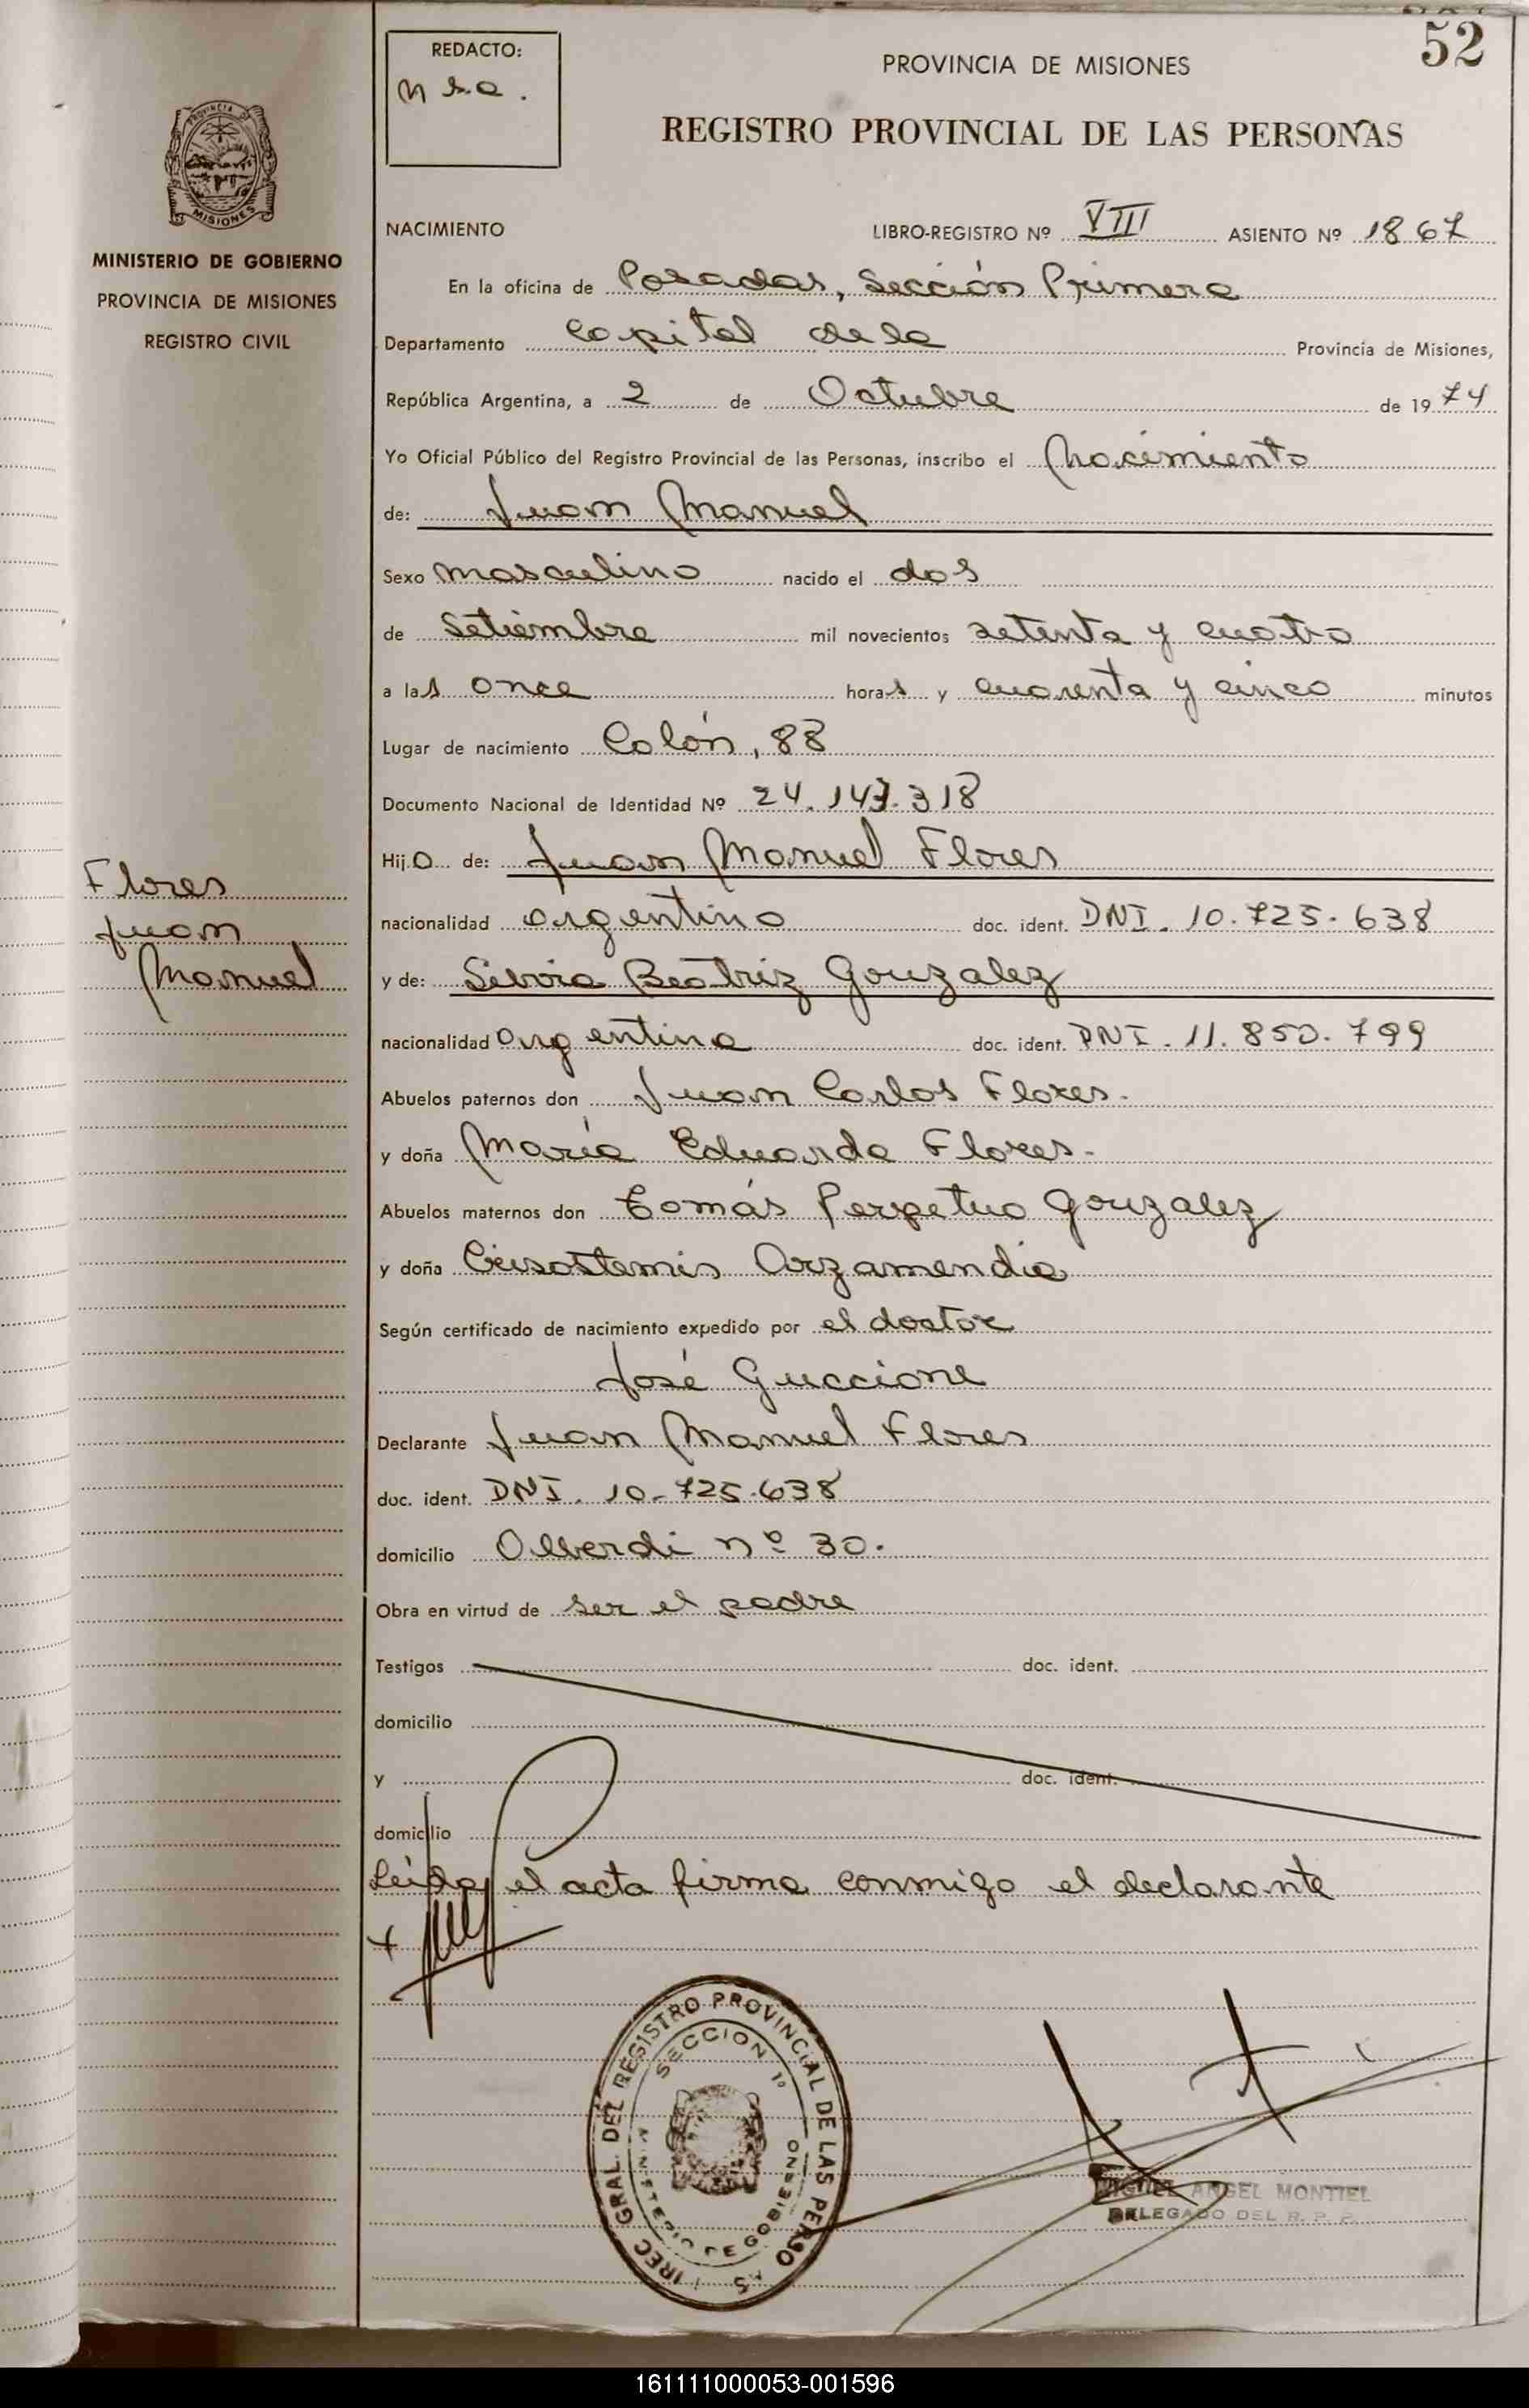 52
REDACTO:
PROVINCIA DE MISIONES
REGISTRO PROVINCIAL DE LAS PERSONAS
MISIONES
MINISTERIO DE GOBIERNO
PROVINCIA DE MISIONES
REGISTRO CIVIL
NACIMIENTO LIBRO-REGISTRO Nº VIII ASIENTO Nº 1867
En la oficina de Posadas, Sección Primera
Departamento Capital de la Provincia de Misiones,
República Argentina, a 2 de Octubre de 1974
Yo Oficial Público del Registro Provincial de las Personas, inscribo el Nacimiento
de: Juan Manuel
Sexo masculino nacido el dos
de Setiembre mil novecientos setenta y cuatro
a las once horas y cuarenta y cinco minutos
Lugar de nacimiento Colón, 88
Documento Nacional de Identidad Nº 24.147.318
Hijo de: Juan Manuel Flores
nacionalidad argentino doc. ident. DNI. 10.725.638
y de: Silvia Beatriz Gonzalez
nacionalidad argentina doc. ident. DNI. 11.850.799
Abuelos paternos don Juan Carlos Flores.
y doña María Eduarda Flores.
Abuelos maternos don Tomás Perpetuo Gonzalez
y doña Crisostemis Arzamendia
Según certificado de nacimiento expedido por el doctor
José Guccione
Declarante Juan Manuel Flores
doc. ident. DNI. 10.725.638
domicilio Alberdi nº 30.
Obra en virtud de ser el padre
Testigos doc. ident.
domicilio
y doc. ident.
domicilio
Leída el acta firma conmigo el declarante
Flores
Juan
Manuel
GRAL. DEL REGISTRO PROVINCIAL DE LAS
SECCION 1º
MIGUEL ANGEL MONTIEL
DELEGADO DEL R. P. P.
161111000053-001596